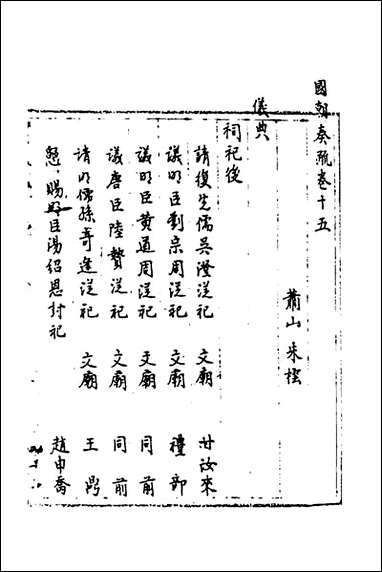 國朝奏疏卷十五
蕭山朱橒
儀典
祠祀後
請復先儒吳澄從祀 文廟 甘汝來
議明臣劉宗周從祀 文廟 禮部
議明臣黄道周從祀 文廟 同前
議唐臣陸贄從祀 文廟 同前
請明儒孫奇逢從祀 文廟 王
懇 賜明臣湯紹恩封祀 趙申喬